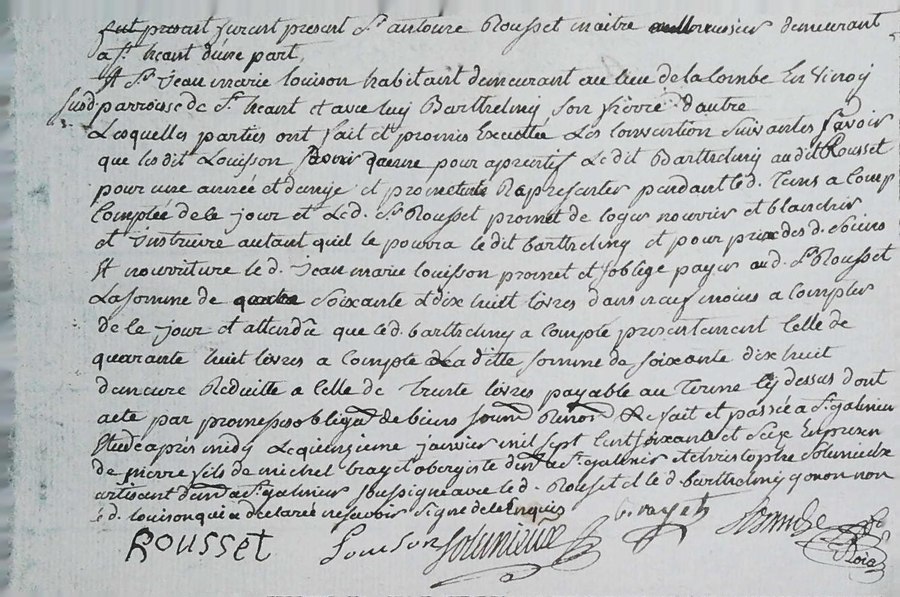 fut present furent present Sr antoine Rousset maitre demeurant
a St heant d'une part
Et Sr Jean marie louison habitant demeurant au lieu de la Combe En Viroy
susd parroisse de St heant et avec luy Barthelmy son frerre d'autre
Lesquelles parties ont fait et promis Executter Les Convention suivantes savoir
que les dit Louisson donne pour aprentif Le dit Barthelmy au dit Rousset
pour une année et demÿe et promet Represanter pandant led. Tems a Comp
Comptée de le jour et Led. Sr Rousset promet de loger nourrir et blanchir
et Instruire autant quil le pourra le dit barthelmy et pour prix des d. soins
Et nourriture le d. Jean marie louisson promet et soblige payer aud. Sr Rousset
La somme de soixante et dix huit livres dans neuf mois a Compter
de le jour et attendu que led. barthelmy a Compté presentement Celle de
quarante huit livres a Compte de la ditte somme de soixante dix huit
demeure Reduitte a Celle de Trente livres payable au Terme Cy dessus dont
acte par promesse oblig de biens soum Renon &c fait et passée a St galmier
Etude apres midy Le quinzieme janvier mil sept Cent soixante et seize En presen
de pierre fils de michel brayet obergiste dud St galmier et christophe Solumieux
artisant dud St galmier soussigné avec le d. Rousset et le d. barthelmy gonon non
le d. louison qui a declarée ne scavoir signe de Ce Enquis
ROUSSET Louison Solumieux brayet